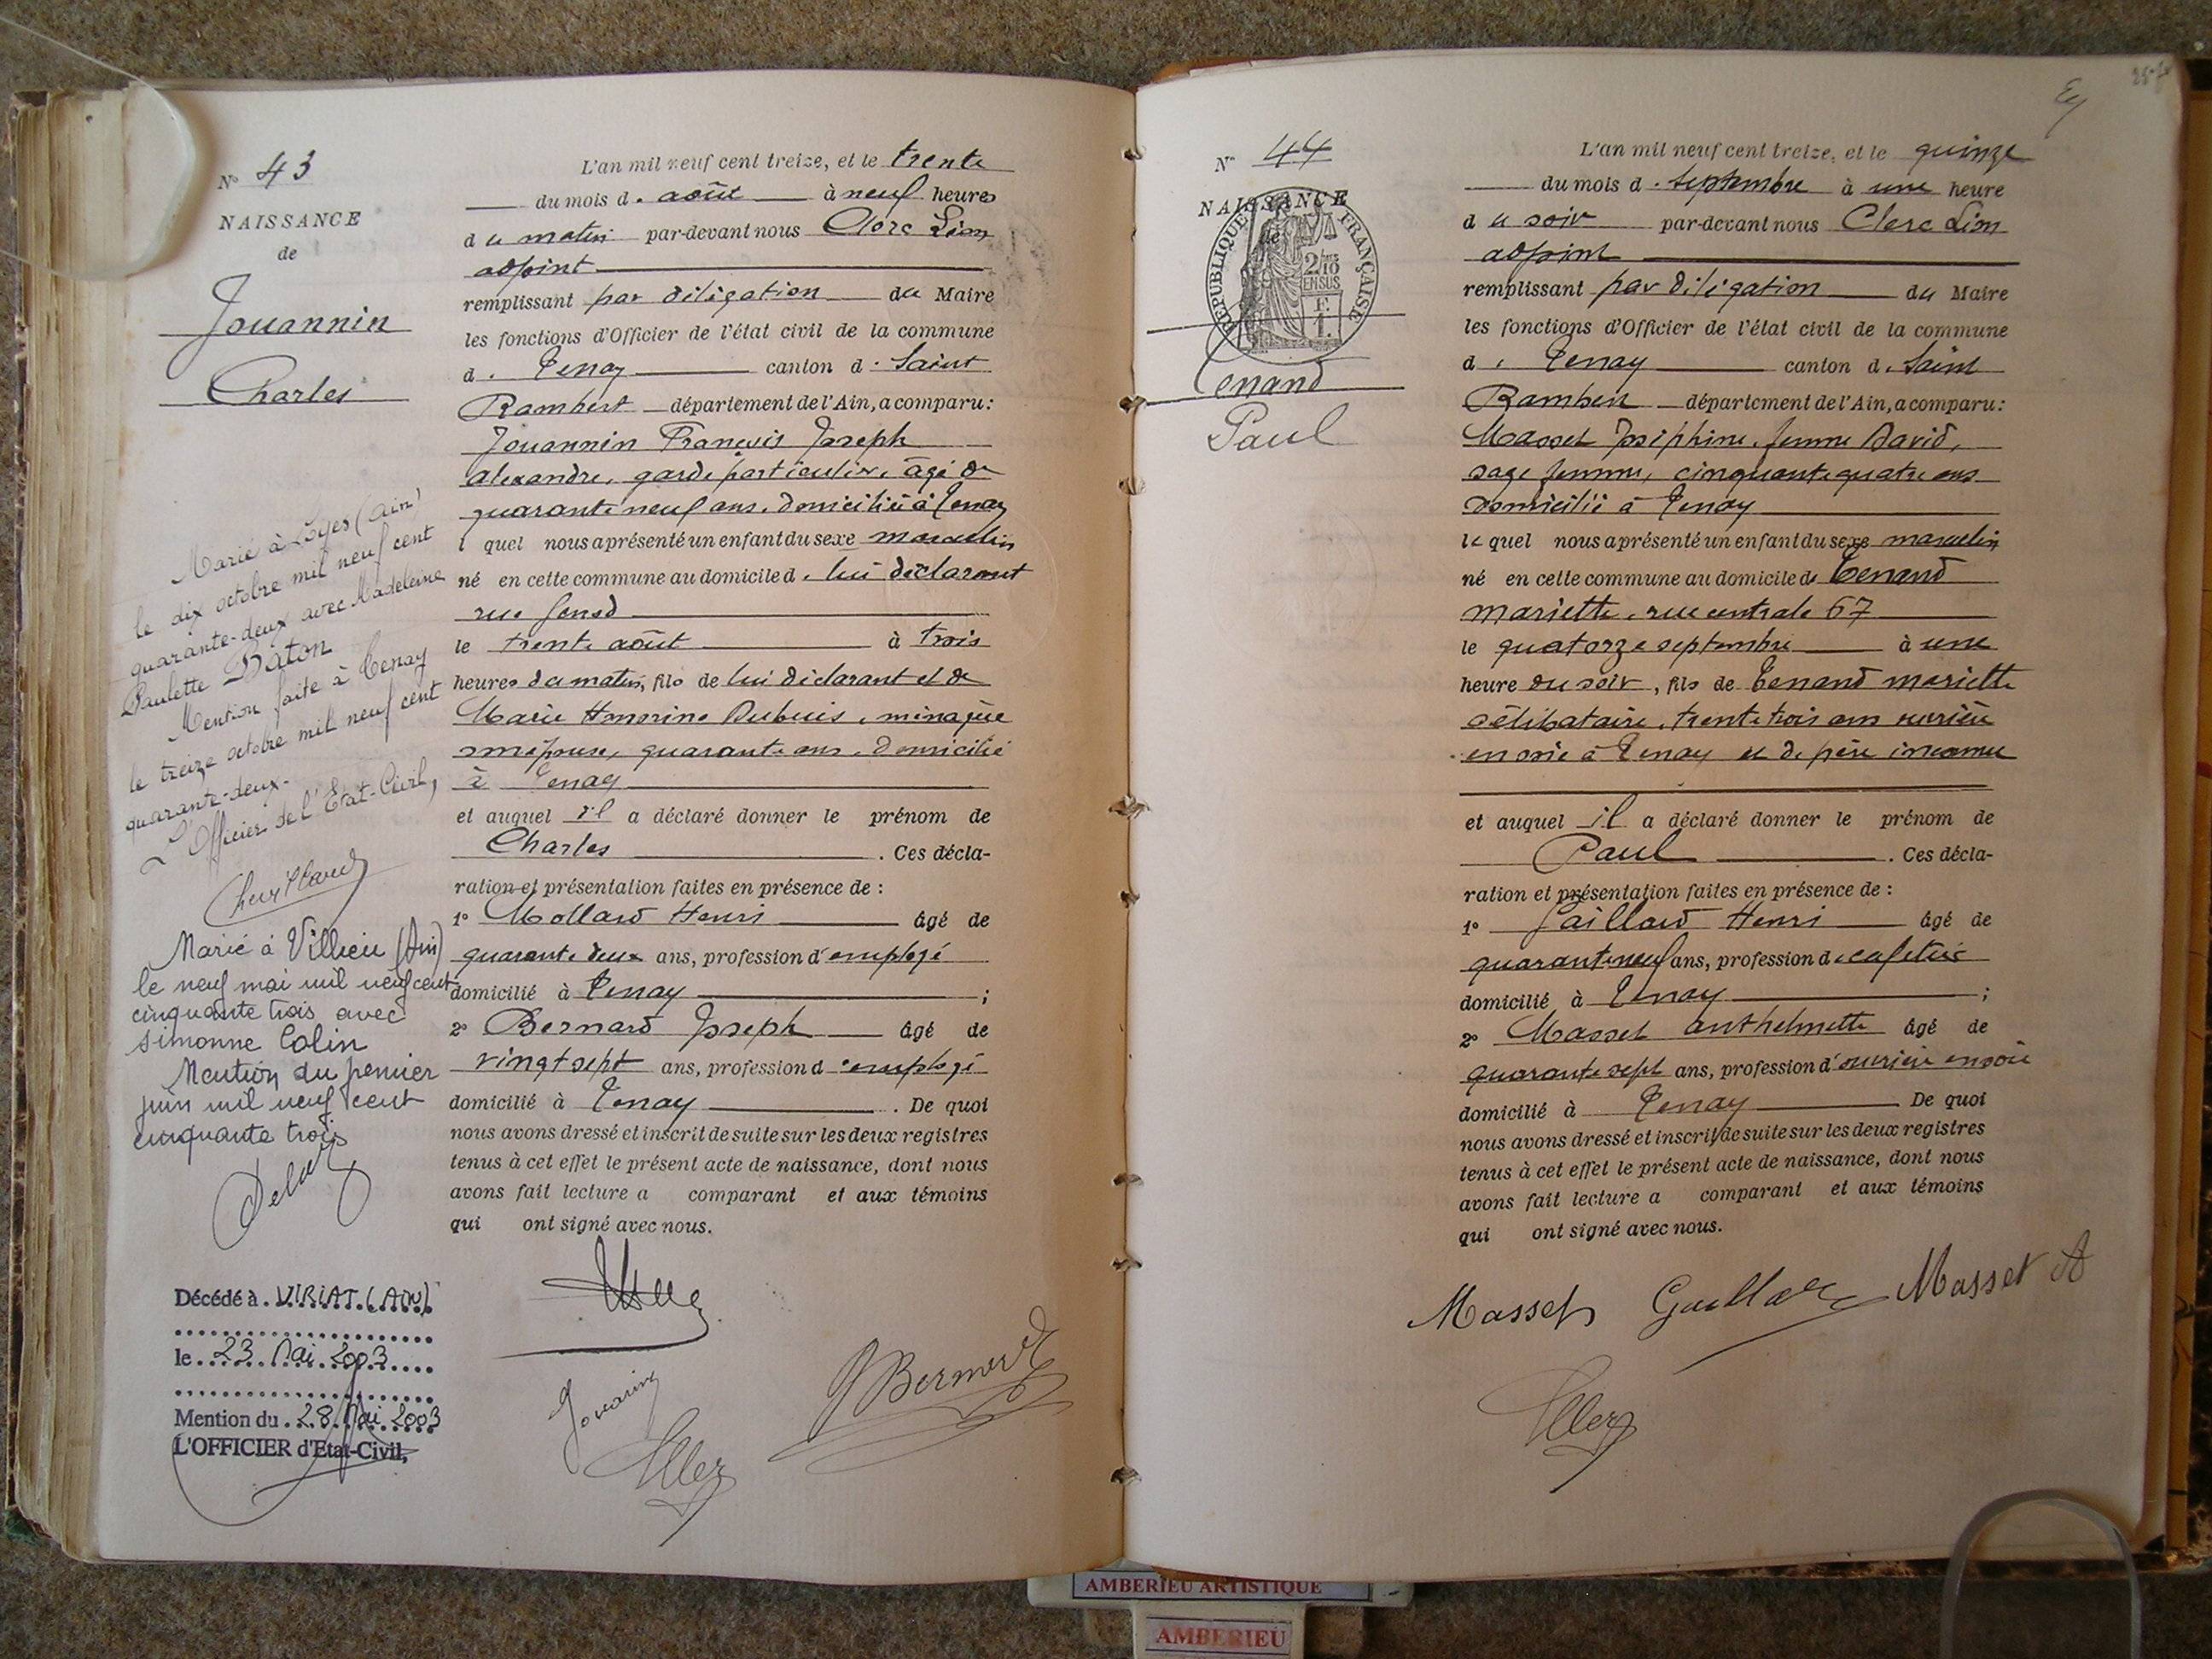 N° 43
NAISSANCE
de
Jouannin
Charles
Marié à (Ain)
le dix octobre mil neuf cent
quarante-deux avec Madeleine
Paulette Baton
Mention faite à Tenay
le treize octobre mil neuf cent
quarante-deux.
L'Officier de l'Etat-Civil,
Marié à Villieu (Ain)
le neuf mai mil neuf cent
cinquante trois avec
Simonne Colin
Mention du premier
juin mil neuf cent
cinquante trois
Décédé à VIRIAT (AIN)
le 23 Mai 2003
Mention du 28 Mai 2003
L'OFFICIER d'Etat-Civil,
L'an mil neuf cent treize, et le trente
du mois d. août à neuf heures
du matin par-devant nous Clerc Léon
adjoint
remplissant par déligation du Maire
les fonctions d'Officier de l'état civil de la commune
d. Tenay canton d. Saint
Rambert département de l'Ain, a comparu :
Jouannin François Joseph
Alexandre, garde particulier, âgé de
quarante neuf ans, domicilié à Tenay
l quel nous a présenté un enfant du sexe masculin
né en cette commune au domicile d. lui déclarant
rue
le trente août à trois
heures du matin, fils de lui déclarant et de
Marie Honorine Dubuis, ménagère
son épouse, quarante ans, domicilié
à Tenay
et auquel il a déclaré donner le prénom de
Charles . Ces décla-
ration et présentation faites en présence de :
1° Mollard Henri âgé de
quarante deux ans, profession d'employé
domicilié à Tenay ;
2° Bernard Joseph âgé de
vingt sept ans, profession d'employé
domicilié à Tenay . De quoi
nous avons dressé et inscrit de suite sur les deux registres
tenus à cet effet le présent acte de naissance, dont nous
avons fait lecture a comparant et aux témoins
qui ont signé avec nous.
Jouannin
J Bernard
N° 44
NAISSANCE
de
REPUBLIQUE FRANÇAISE
2/10
EN SUS
F.
1.
Tenand
Paul
L'an mil neuf cent treize, et le quinze
du mois d. septembre à une heure
du soir par-devant nous Clerc Léon
adjoint
remplissant par déligation du Maire
les fonctions d'Officier de l'état civil de la commune
d. Tenay canton d. Saint
Rambert département de l'Ain, a comparu :
Masset Joséphine, femme David,
sage femme, cinquante quatre ans
domicilié à Tenay
lequel nous a présenté un enfant du sexe masculin
né en cette commune au domicile de Tenand
Mariette, rue centrale 67
le quatorze septembre à une
heure du soir, fils de Tenand Mariette
célibataire, trente trois ans ouvrière
en soie à Tenay et de père inconnu
et auquel il a déclaré donner le prénom de
Paul . Ces décla-
ration et présentation faites en présence de :
1° Gaillard Henri âgé de
quarante neuf ans, profession de cafetier
domicilié à Tenay ;
2° Masset Anthelmette âgé de
quarante sept ans, profession d'ouvrière en soie
domicilié à Tenay De quoi
nous avons dressé et inscrit de suite sur les deux registres
tenus à cet effet le présent acte de naissance, dont nous
avons fait lecture a comparant et aux témoins
qui ont signé avec nous.
Masset Gaillard Masset A
AMBERIEU ARTISTIQUE
AMBERIEU